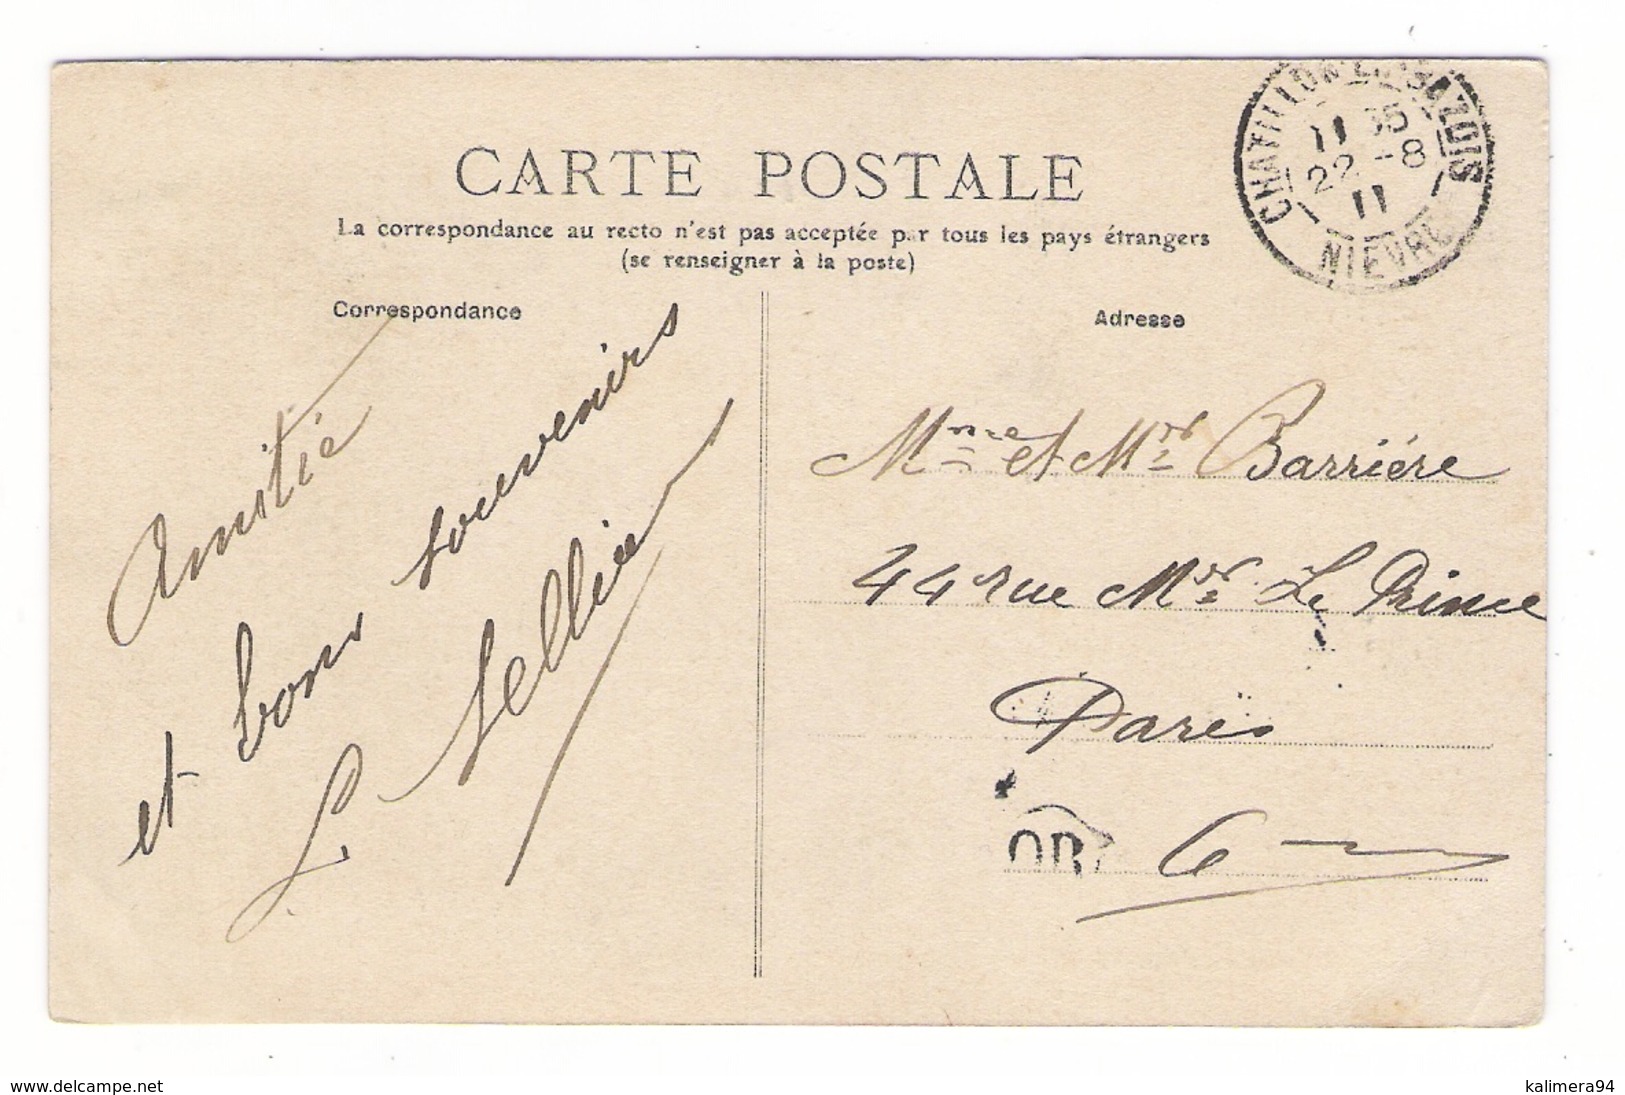 CARTE POSTALE
La correspondance au recto n'est pas acceptée par tous les pays étrangers
(se renseigner à la poste)
Correspondance
Adresse
CHATILLON-EN-BAZOIS
11 35
22 -8
11
NIEVRE
Amitié
et bons souvenirs
L. Sellier
Mme et Mr Barriére
44 rue Mr Le Prince
Paris
OR
6
www.delcampe.net
kalimera94